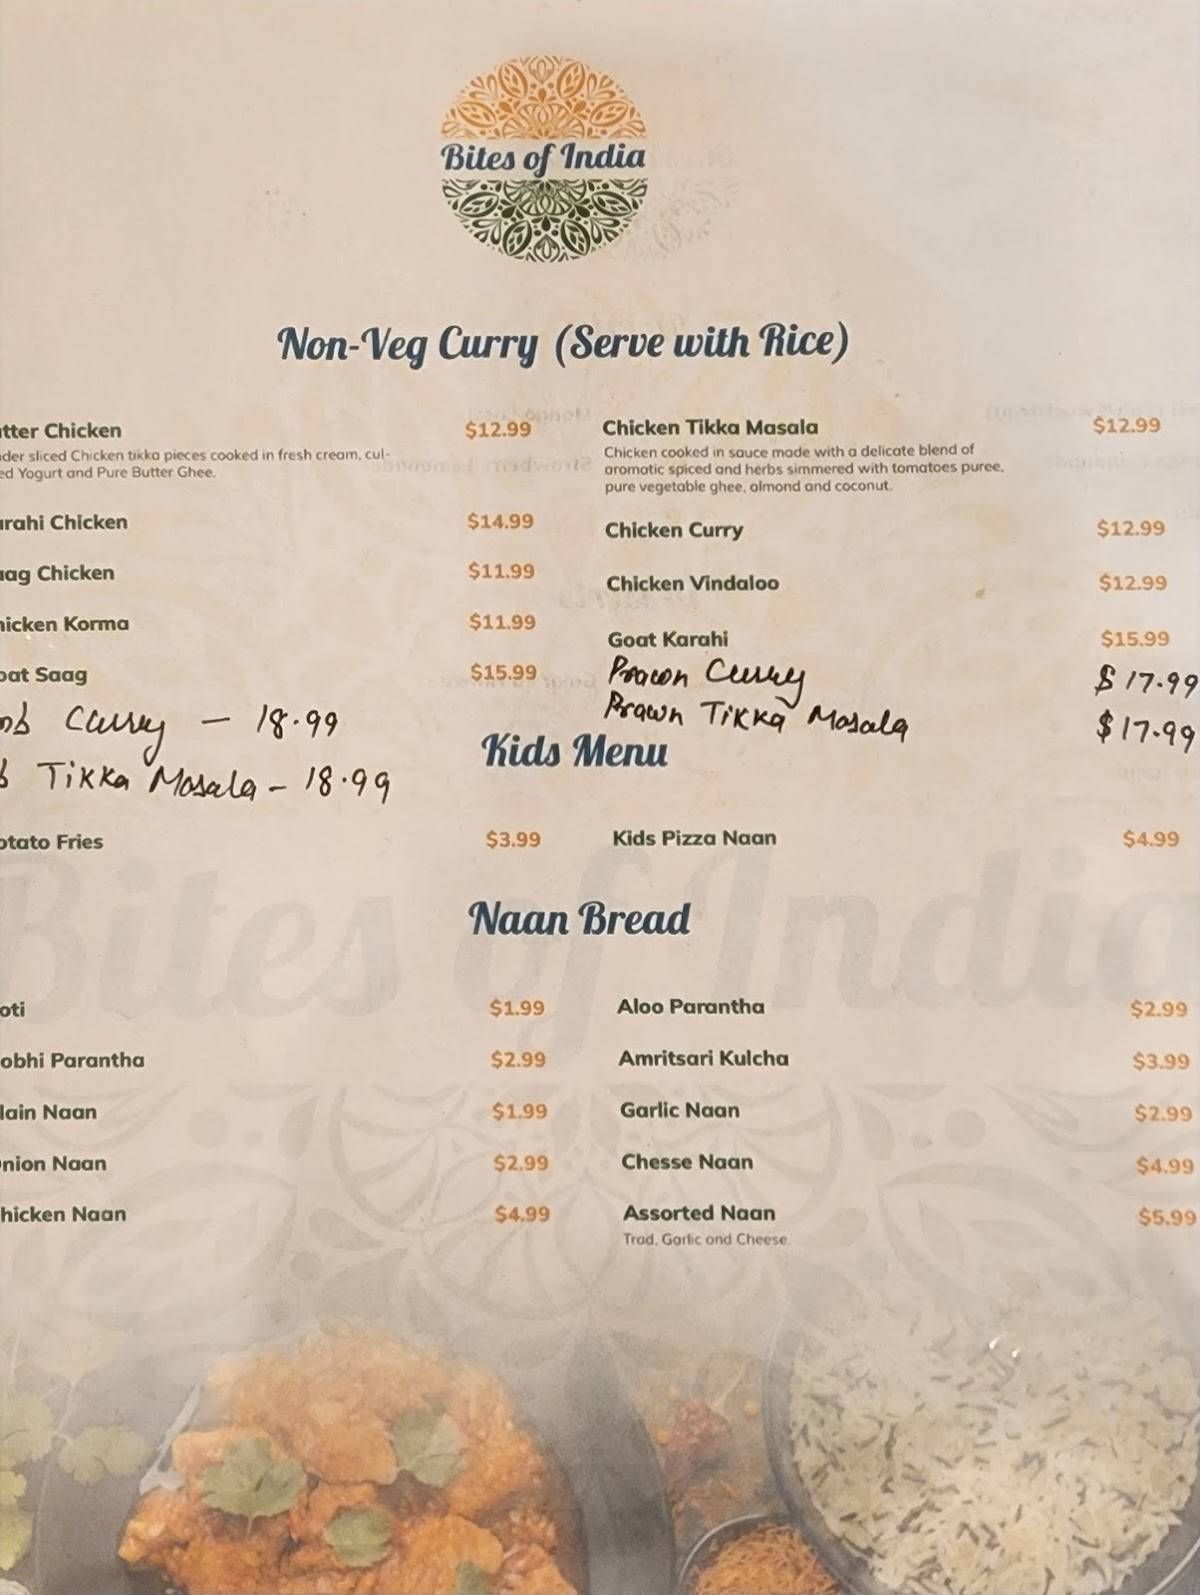 Bites of India
Non-Veg Curry (Serve with Rice)
tter Chicken $12.99
der sliced Chicken tikka pieces cooked in fresh cream, cul-
ed Yogurt and Pure Butter Ghee.
rahi Chicken $14.99
ag Chicken $11.99
icken Korma $11.99
oat Saag $15.99
mb Curry - 18.99
b Tikka Masala - 18.99
Chicken Tikka Masala $12.99
Chicken cooked in sauce made with a delicate blend of
aromatic spiced and herbs simmered with tomatoes puree,
pure vegetable ghee, almond and coconut.
Chicken Curry $12.99
Chicken Vindaloo $12.99
Goat Karahi $15.99
Prawn Curry $17.99
Prawn Tikka Masala $17.99
Kids Menu
otato Fries $3.99
Kids Pizza Naan $4.99
Naan Bread
oti $1.99
obhi Parantha $2.99
lain Naan $1.99
nion Naan $2.99
hicken Naan $4.99
Aloo Parantha $2.99
Amritsari Kulcha $3.99
Garlic Naan $2.99
Chesse Naan $4.99
Assorted Naan $5.99
Trad, Garlic and Cheese.
Bites of India